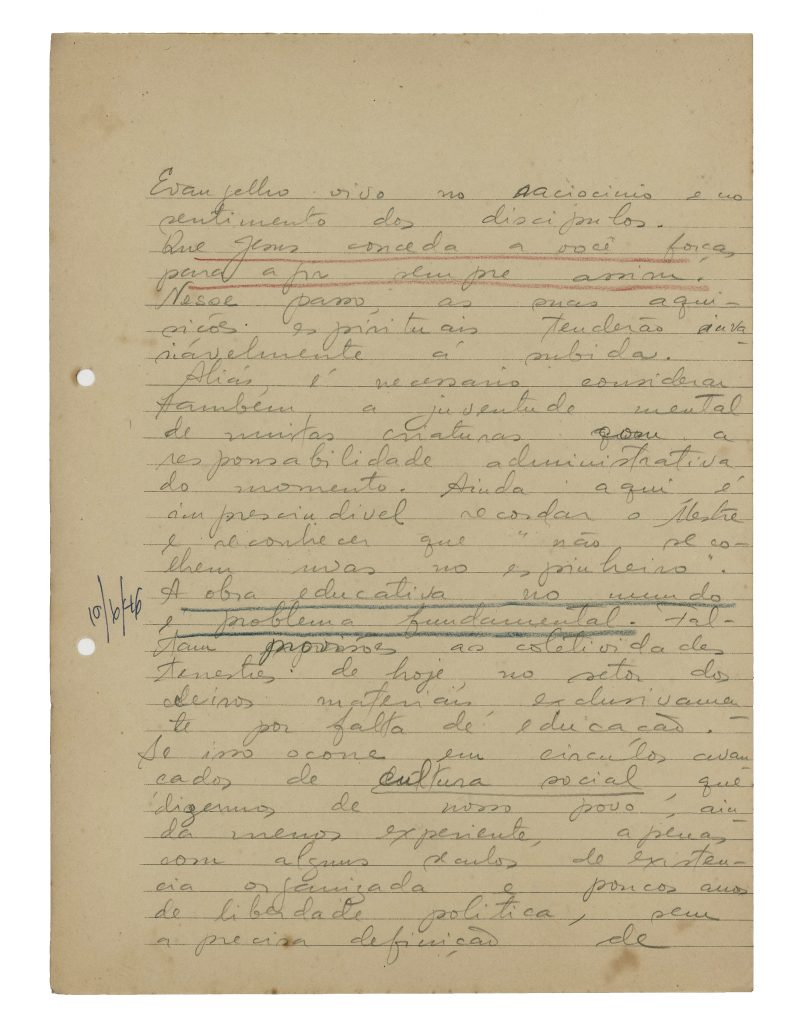 Evangelho vivo no raciocinio e no
sentimento dos discipulos.
Que Jesus conceda a você forças
para agir sempre assim.
Nesse passo, as suas aqui-
sicões espirituais tenderão inva-
riávelmente á subida.
Aliás, é necessario considerar
tambêm a juventude mental
de muitas criaturas com a
responsabilidade administrativa
do momento. Ainda aqui é
imprescindivel recordar o Mestre
e reconhecer que "não se co-
lhem uvas no espinheiro".
A obra educativa no mundo
10/6/46
é problema fundamental. Fal-
tam provisões as coletividades
terrestres de hoje, no setor dos
celeiros materiais, exclusivamen
te por falta de educacão. —
Se isso ocorre em circulos avan
cados de cultura social, que
dizermos de nosso povo, ain-
da menos experiente, apenas
com alguns seculos de existen-
cia organizada e poucos anos
de liberdade politica, sem
a precisa definição de